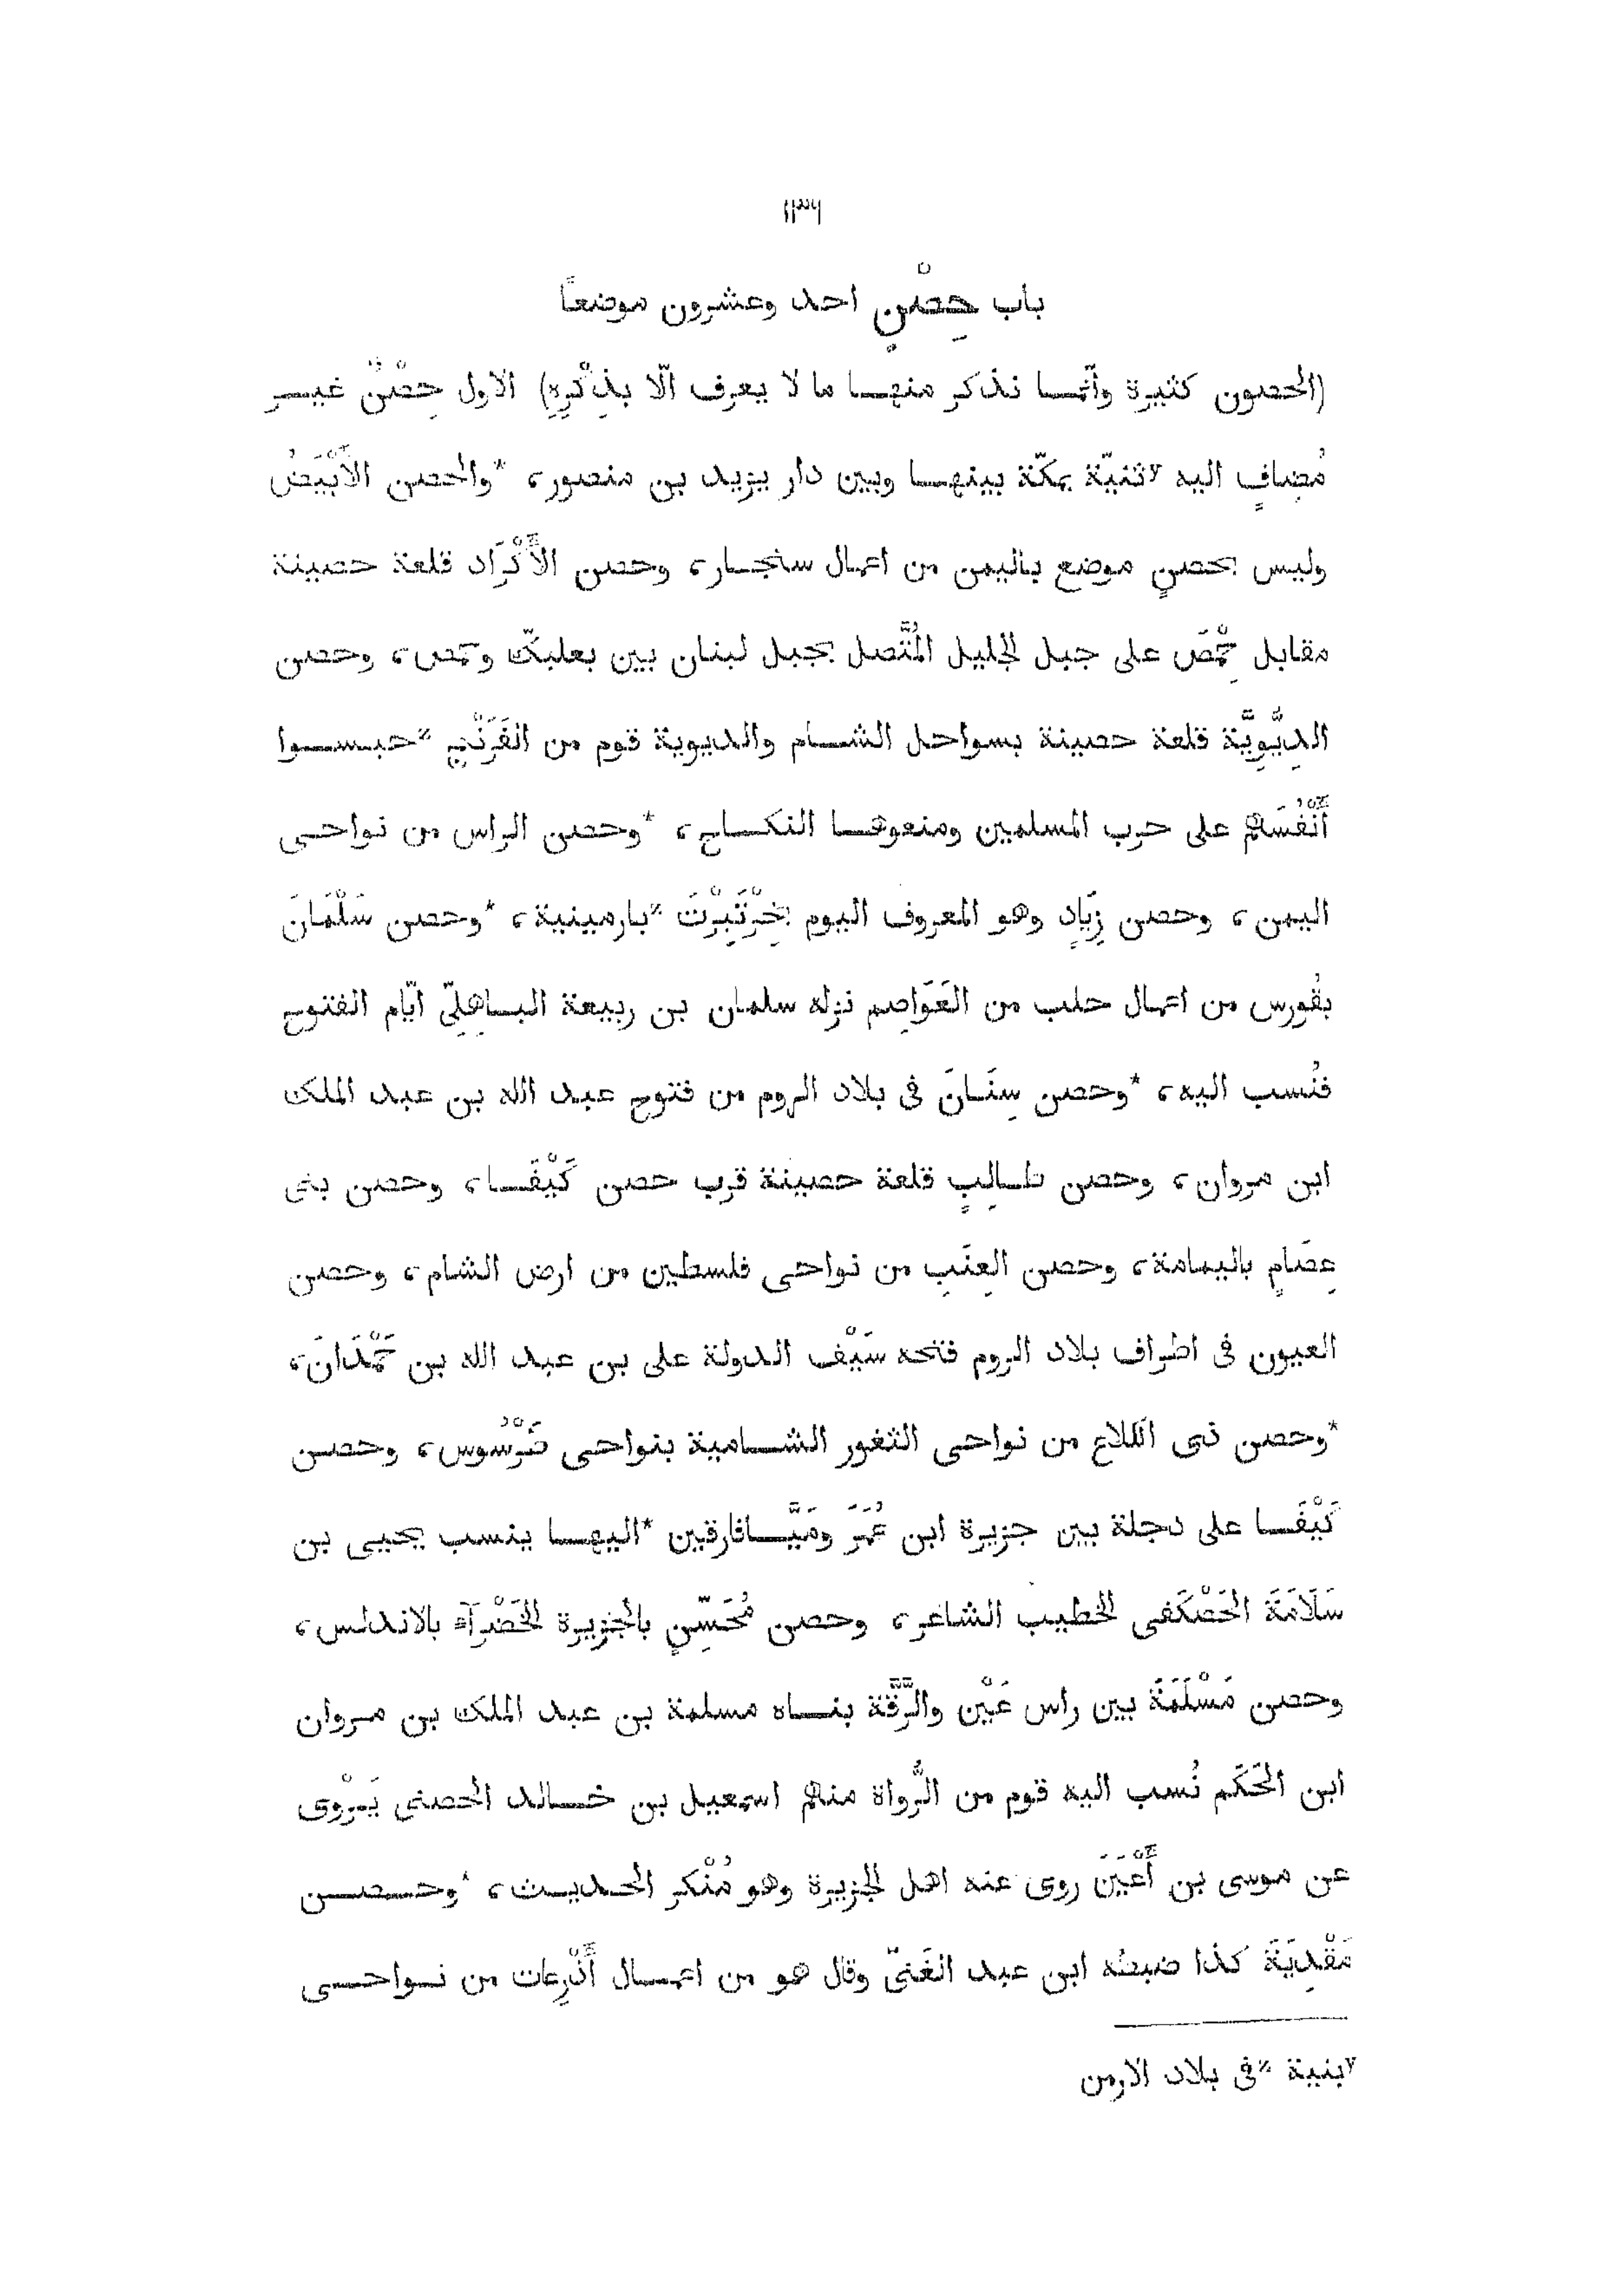 ١٣٦
باب حِصْنٍ احد وعشرون موضعًا
(الحصون كثيرة وانّما نذكر منها ما لا يعرف الّا بذِكْرِهِ) الاول حِصْنٌ غير
مُضافٍ اليه لاثنيّة بمكّة بينها وبين دار يزيد بن منصور، *والحصن الأَبْيَضُ
وليس بحصنٍ موضع باليمن من اعمال سنجار، وحصن الأَكْرَاد قلعة حصينة
مقابل حِمْصَ على جبل الجليل المُتَّصل بجبل لبنان بين بعلبكّ وحمص، وحصن
الدِيَّوِيَّة قلعة حصينة بسواحل الشام والديوية قوم من الفَرَنْجِ حبسوا
أَنْفُسَهم على حرب المسلمين ومنعوها النكاح، *وحصن الراس من نواحى
اليمن، وحصن زِيَادٍ وهو المعروف اليوم بخَرْتَبِرْتَ بارمينية، *وحصن سَلْمَانَ
بقُورس من اعمال حلب من العَوَاصِم نزله سلمان بن ربيعة الباهِلِىّ ايّام الفتوح
فنُسب اليه، *وحصن سِنَانَ فى بلاد الروم من فتوح عبد الله بن عبد الملك
ابن مروان، وحصن طالِبٍ قلعة حصينة قرب حصن كَيْفَا، وحصن بنى
عِصَامٍ باليمامة، وحصن العِنَبِ من نواحى فلسطين من ارض الشام، وحصن
العيون فى اطراف بلاد الروم فتحه سَيْف الدولة على بن عبد الله بن حَمْدَانَ،
*وحصن ذى الكلاع من نواحى الثغور الشامية بنواحى طَرْسُوس، وحصن
كَيْفَا على دجلة بين جزيرة ابن عُمَرَ ومَيَّافارقين *اليها ينسب يحيى بن
سَلَامَةَ الحَصْكَفى الخطيب الشاعر، وحصن مُحَسِّنٍ بالجزيرة الخَضْرَآءَ بالاندلس،
وحصن مَسْلَمَةَ بين راس عَيْن والرَّقَّة بناه مسلمة بن عبد الملك بن مروان
ابن الحَكَم نُسب اليه قوم من الرُّواة منهم اسمعيل بن خالد الحصنى يَرْوى
عن موسى بن أَعْيَنَ روى عنه اهل الجزيرة وهو مُنْكر الحديث، *وحصن
مَقْدِيَةَ كذا ضبطه ابن عبد الغَنىّ وقال هو من اعمال أَذْرِعات من نواحى
y بنية z فى بلاد الارمن